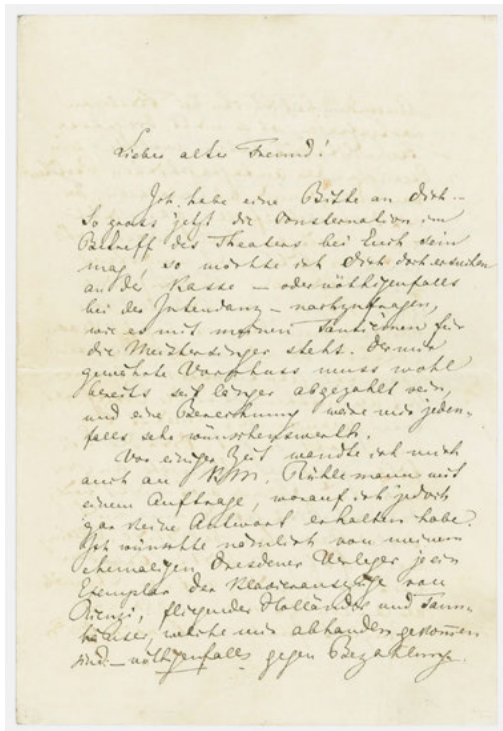 Lieber alter Freund!
Ich habe eine Bitte an Dich. –
So gross jetzt die Consternation im
Betreff des Theaters bei Euch sein
mag, so möchte ich Dich doch ersuchen
an der Kasse – oder nöthigenfalls
bei der Intendanz – nachzufragen,
wie es mit meinen Tantièmen für
die Meistersinger steht. Der mir
gewährte Vorschuss muss wohl
bereits seit länger abgezahlt sein,
und eine Berechnung wäre mir jeden-
falls sehr wünschenswerth.
Vor einiger Zeit wandte ich mich
auch an KM. Rühlemann mit
einem Auftrage, worauf ich jedoch
gar keine Antwort erhalten habe.
Ich wünschte nämlich von meinem
ehemaligen Dresdener Verleger je ein
Exemplar der Klavierauszüge von
Rienzi, fliegender Holländer und Tann-
häuser, welche mir abhanden gekommen
sind – nöthigenfalls gegen Bezahlung.